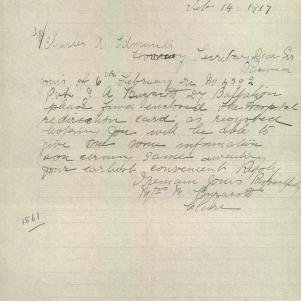 Feb 14 - 1917
Charles A Edmunds
Secretary Dear Sir
yours of 6th February re No 4392
Pvte J A Battalion
Please find enclosed the Hospital
redirection card, as requested
hoping you will be able to
give me some information
concerning same awaiting
your earliest convenient Reply
I remain yours Respectfully
Mrs M
1561